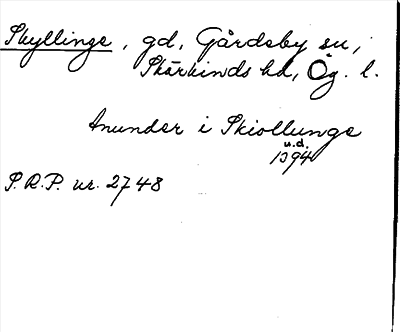 Skyllinge, gd, Gårdeby sn,
Skärkinds hd, Ög. l.
Anunder i Skiollunge
u.d.
1394
S.R.P. nr. 2748